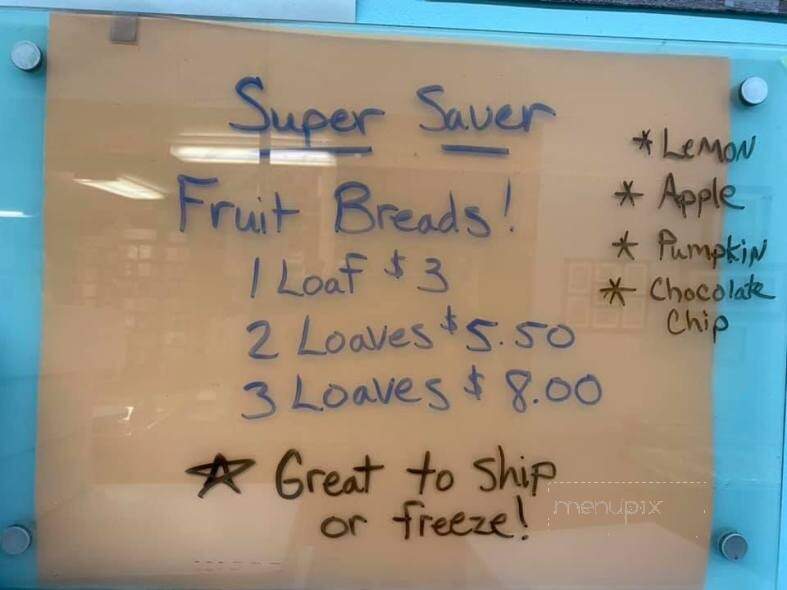 Super Saver
Fruit Breads!
1 Loaf $3
2 Loaves $5.50
3 Loaves $8.00
☆ Great to Ship
or freeze!
* Lemon
* Apple
* Pumpkin
* Chocolate
Chip
menupix